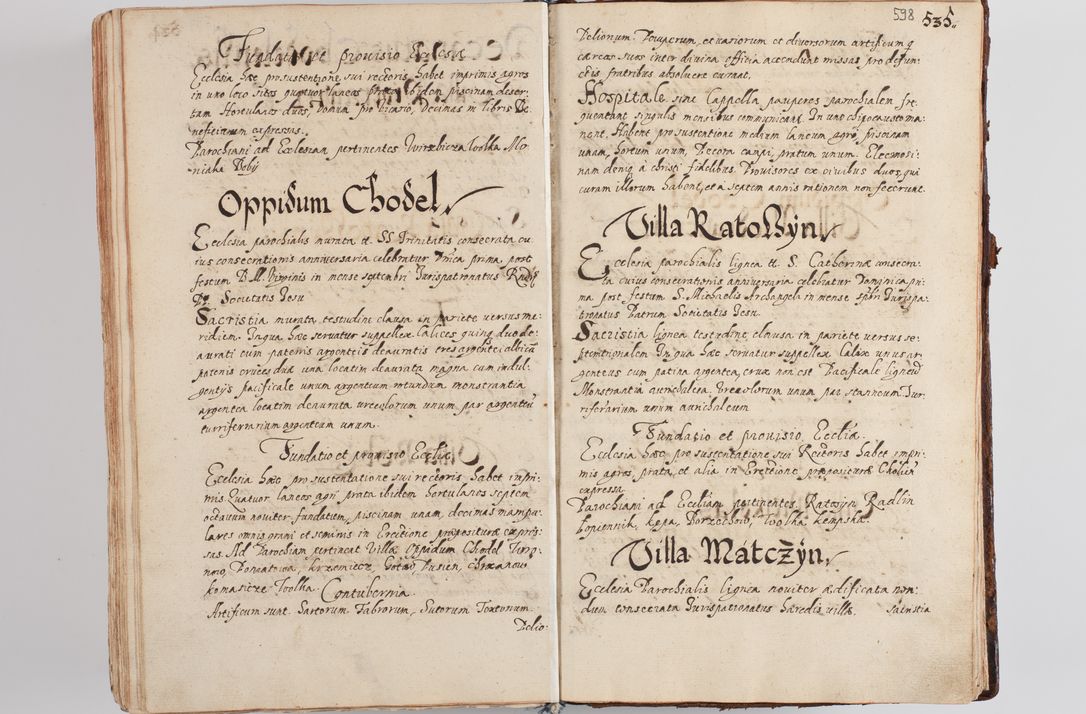 Fundatio et prouisio Ecclesiæ
Ecclesia hæc pro sustentatione sui rectoris habet imprimis agros
in uno loco sitos quatuor laneos prata ibidem piscinam deser:
tam Hortulanos duos, Domum pro Vicario, Decimas in libris Be
neficiorum expressas.
Parochiani ad Ecclesiam pertinentes Wirzbicza Woolka Mo
niaka Doby
Oppidum Chodel
Ecclesia parochialis murata tt. SS Trinitatis consecrata cu
ius consecrationis anniuersaria celebratur Dnica prima post
festum B. M. Virginis in mense septembri Iurispatronatus Rndi
Pr Societatis Iesu
Sacristia murata testudine clausa in pariete versus me:
ridiem. In qua hæc seruatur suppellex Calices quinq duo de:
aurati cum patenis argenteis deauratis tres argentei albi cū
patenis cruces duæ una locatim deaurata magna cum indul:
gentijs pacificale unum argenteum rotundum monstrantia
argentea locatim deaurata urceolorum unum par argenteū
turriferarium argenteum unum.
Fundatio et prouisio Eccliæ
Ecclesia hæc pro sustentatione sui rectoris habet impri:
mis Quatuor laneos agri prata ibidem hortulanos septem
octauum nouiter fundatum, piscinam unam, decimas manipu
lares omnis grani et seminis in Erectione præposituræ expres:
sas. Ad Parochiam pertinent Villæ Oppidum Chodel Terzo:
now, Poniatowa, krzemiecz, Gotow, Pusien, chrzanow
komasicze Woolka. Contubernia.
Artificum sunt. Sartorum Fabrorum, Sutorum Textorum.
Pelio:
598 535.
Pelionum. Powperum, et variorum et diuersorum artificum q
cæreas suos inter diuina officia accendunt missas pro defun:
ctis fratribus absoluere curant.
Hospitale sine Cappella pauperes parochialem fre
quentant singulis mensibus communicant. In uno chipocausto ma:
nent. Habent pro sustentatione medium laneum agri, piscinam
unam, hortum unum, Decora campi, pratum unum. Eleemosi:
nam deniq a christi fidelibus. Prouisores ex ciuibus duos, qui
curam illorum habent, et a septem annis rationem non fecerunt.
Villa Ratoszyn
Ecclesia parochialis lignea tt. S. Catherinæ consecra:
ta cuius consecrationis anniuersaria celebratur Dominica pri:
ma post festum S. Michaelis Archangeli in mense 8bri Iurispa:
tronatus Patrum Societatis Iesu.
Sacristia lignea testudine clausa in pariete versus se:
ptemtrionalem In qua hæc seruatur suppellex Calix unus ar:
genteus cum patina argentea, crux non est Pacificale ligneū
Monstrantia aurichalcea. Vrceolorum unum par stanneum. Tur:
riferarium unum aurichalceum
Fundatio et prouisio Eccliæ.
Ecclesia hæc pro sustentatione sui Rectoris habet impri:
mis agros, prata, et alia in Erectione præpositurae Choliē
expressa.
Parochiani ad Eccliam pertinentes Ratosyn Radlin
Łopiennik, kępa, Borzechow, Woolka kempska
Villa Mátcżyn
Ecclesia Parochialis lignea nouiter ædificata non:
dum consecrata Iurispatronatus hæredis villæ.
Sacristia